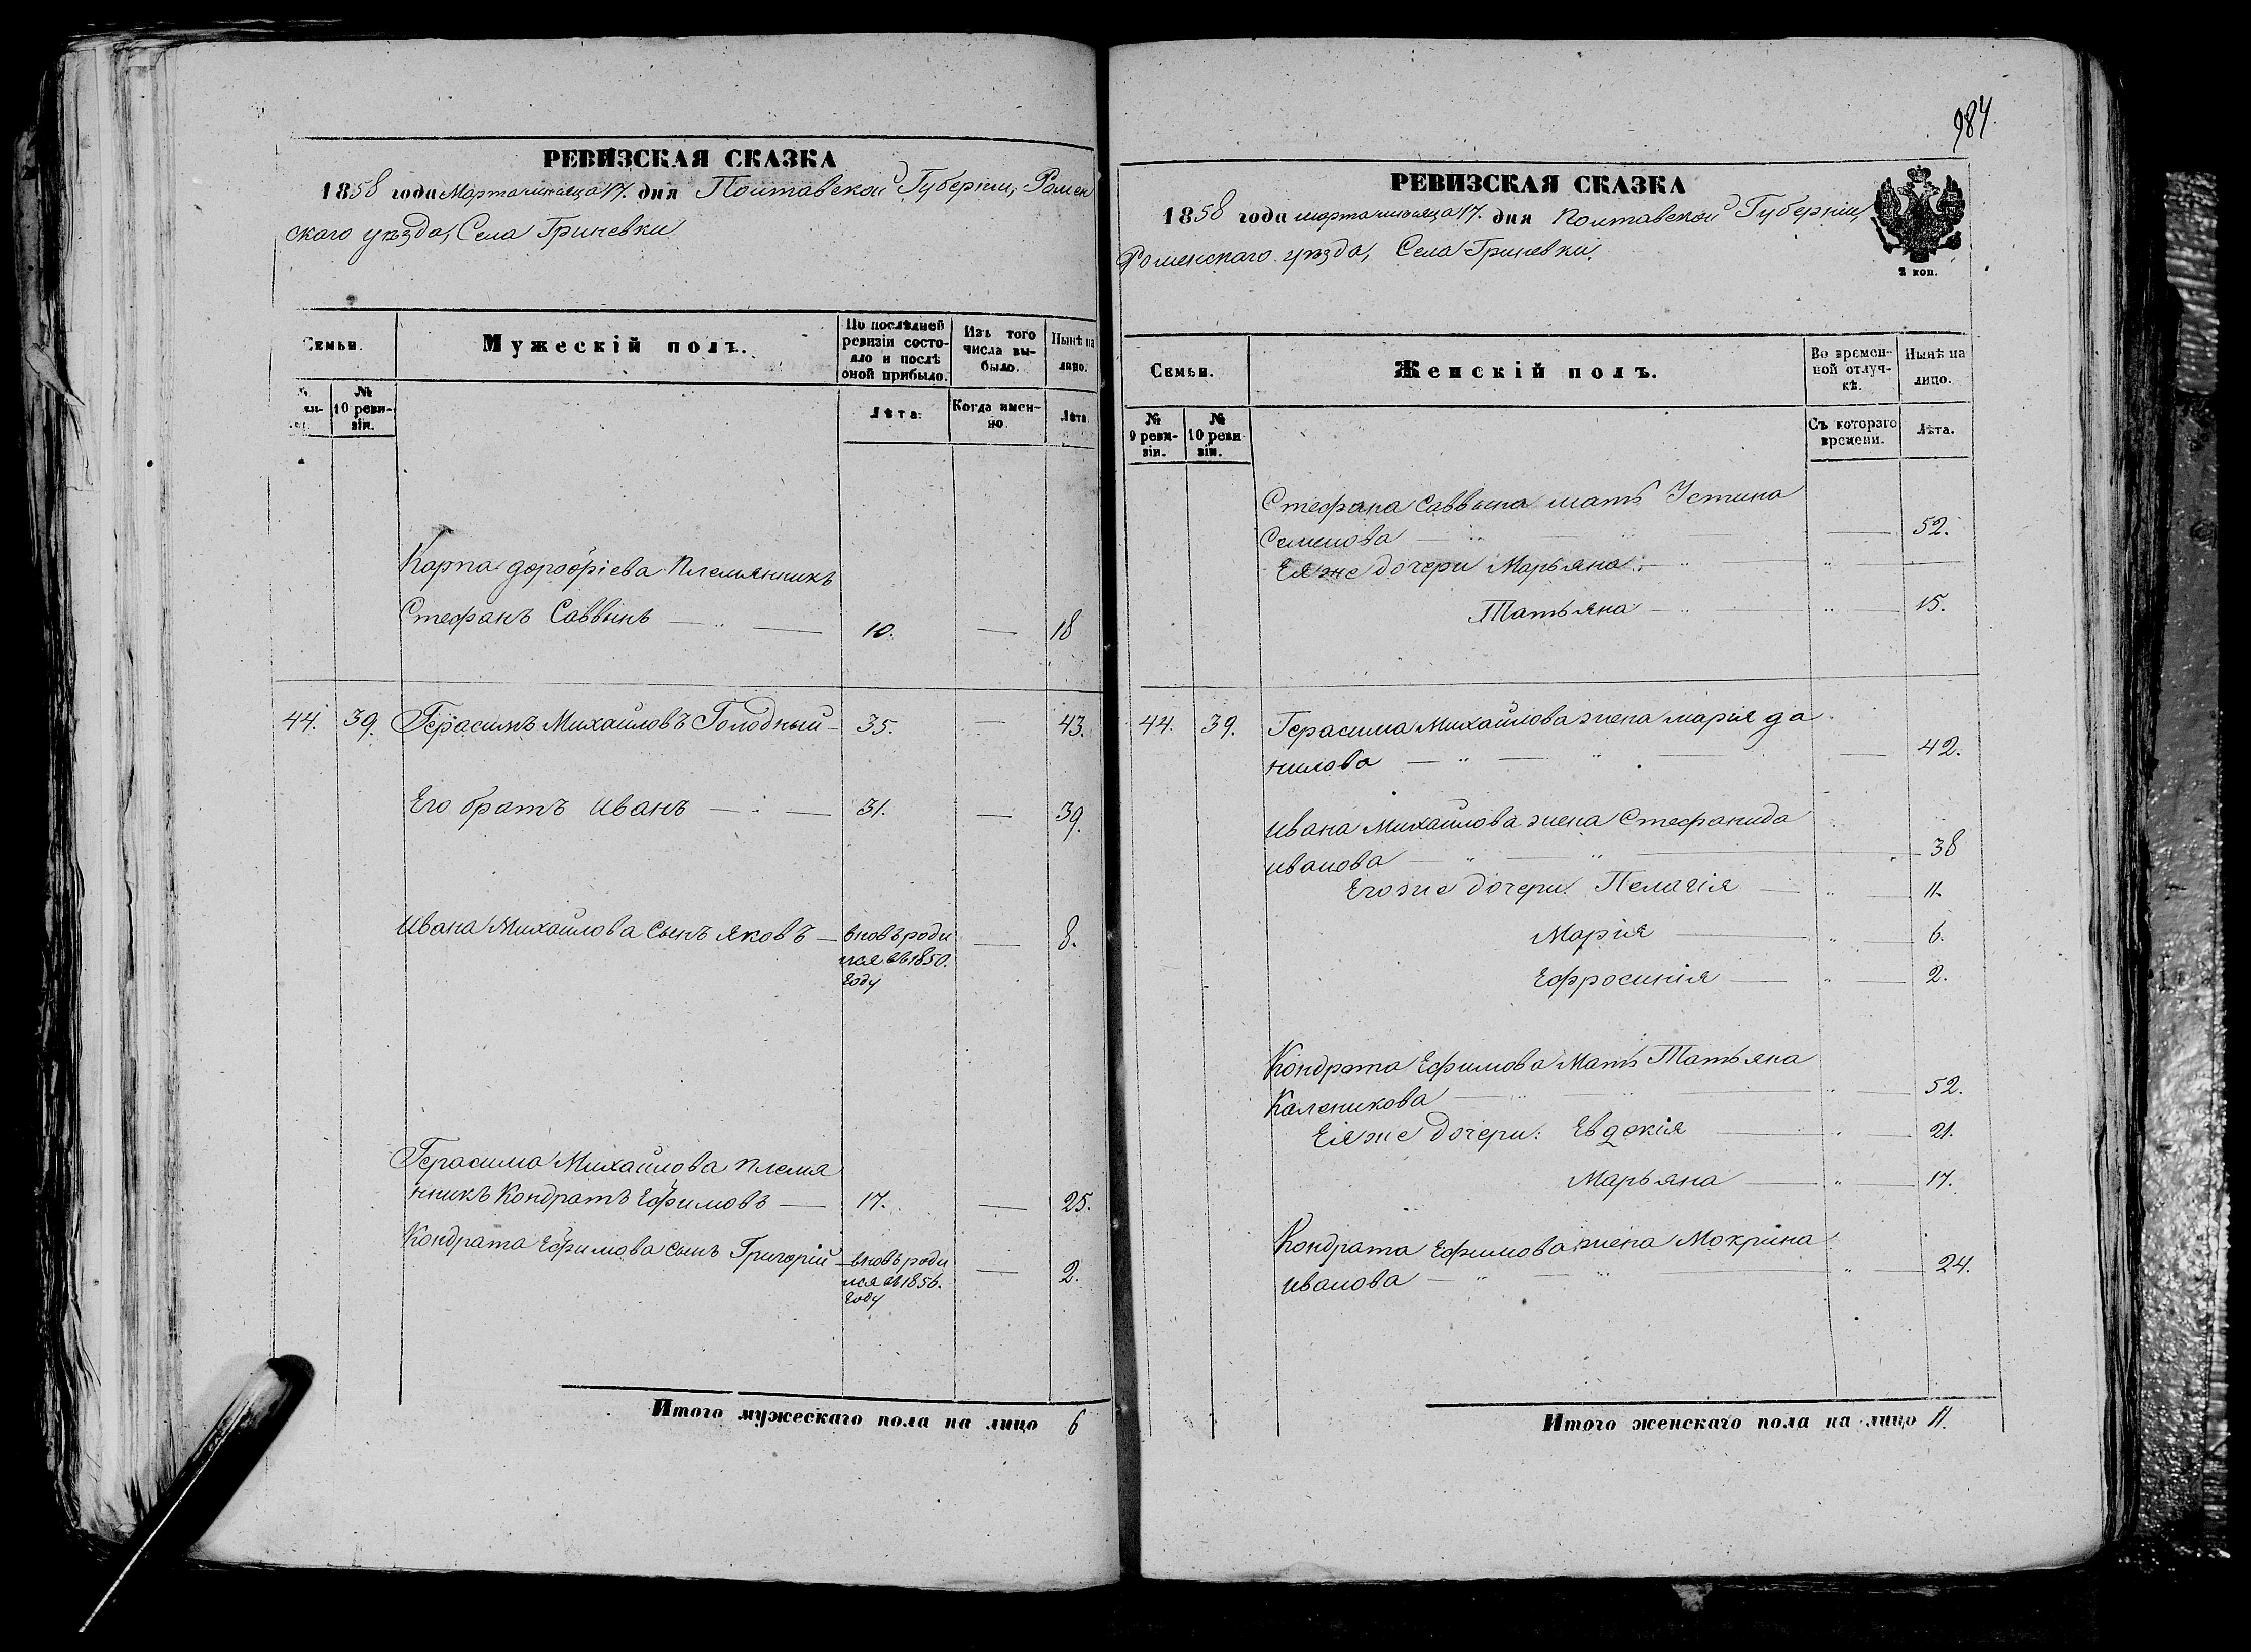 984.
РЕВИЗСКАЯ СКАЗКА
1858 года Марта мѣсяца 17. дня Полтавской Губерніи, Ромен
скаго уѣзда, Села Гриневки
Семьи.
Мужескій полъ.
По послѣдней ревизіи состояло и послѣ оной прибыло.
Изъ того числа выбыло.
Нынѣ на лицо.
№ 10 ревизіи.
Лѣта.
Когда именно.
Лѣта
Карпа Дорофіева племянникъ
Стефанъ Саввинъ — 10. — 18
44. 39. Герасимъ Михайловъ Голодный — 35. — 43.
Его братъ Иванъ — 31. — 39.
Ивана Михайлова сынъ Яковъ — вновъ роди — 8.
лся въ 1850.
году
Герасима Михайлова племя
нникъ Кондратъ Ефимовъ — 17. — 25.
Кондрата Ефимова сынъ Григорій — вновъ роди — 2.
лся въ 1856.
году
Итого мужескаго пола на лицо 6
РЕВИЗСКАЯ СКАЗКА
1858 года марта мѣсяца 17. дня Полтавской Губерніи,
Роменскаго уѣзда, Села Гриневки.
2 коп.
Семьи.
Женскій полъ.
Во временной отлучкѣ.
Нынѣ на лицо.
№ 9 ревизіи.
№ 10 ревизіи.
Съ котораго времени.
Лѣта.
Стефана Саввина мать Устина
Семенова — 52.
Ея же дочери Марьяна: —
Татьяна — 15.
44. 39. Герасима Михайлова жена Марія Да
нилова — 42.
Ивана Михайлова жена Стефанида
Иванова — 38
Его же дочери: Пелагія — 11.
Марія — 6.
Ефросинія — 2.
Кондрата Ефимова мать Татьяна
Каленикова — 52.
Ея же дочери: Евдокія — 21.
Марьяна — 17.
Кондрата Ефимова жена Мокрина
Иванова — 24.
Итого женскаго пола на лицо 11.